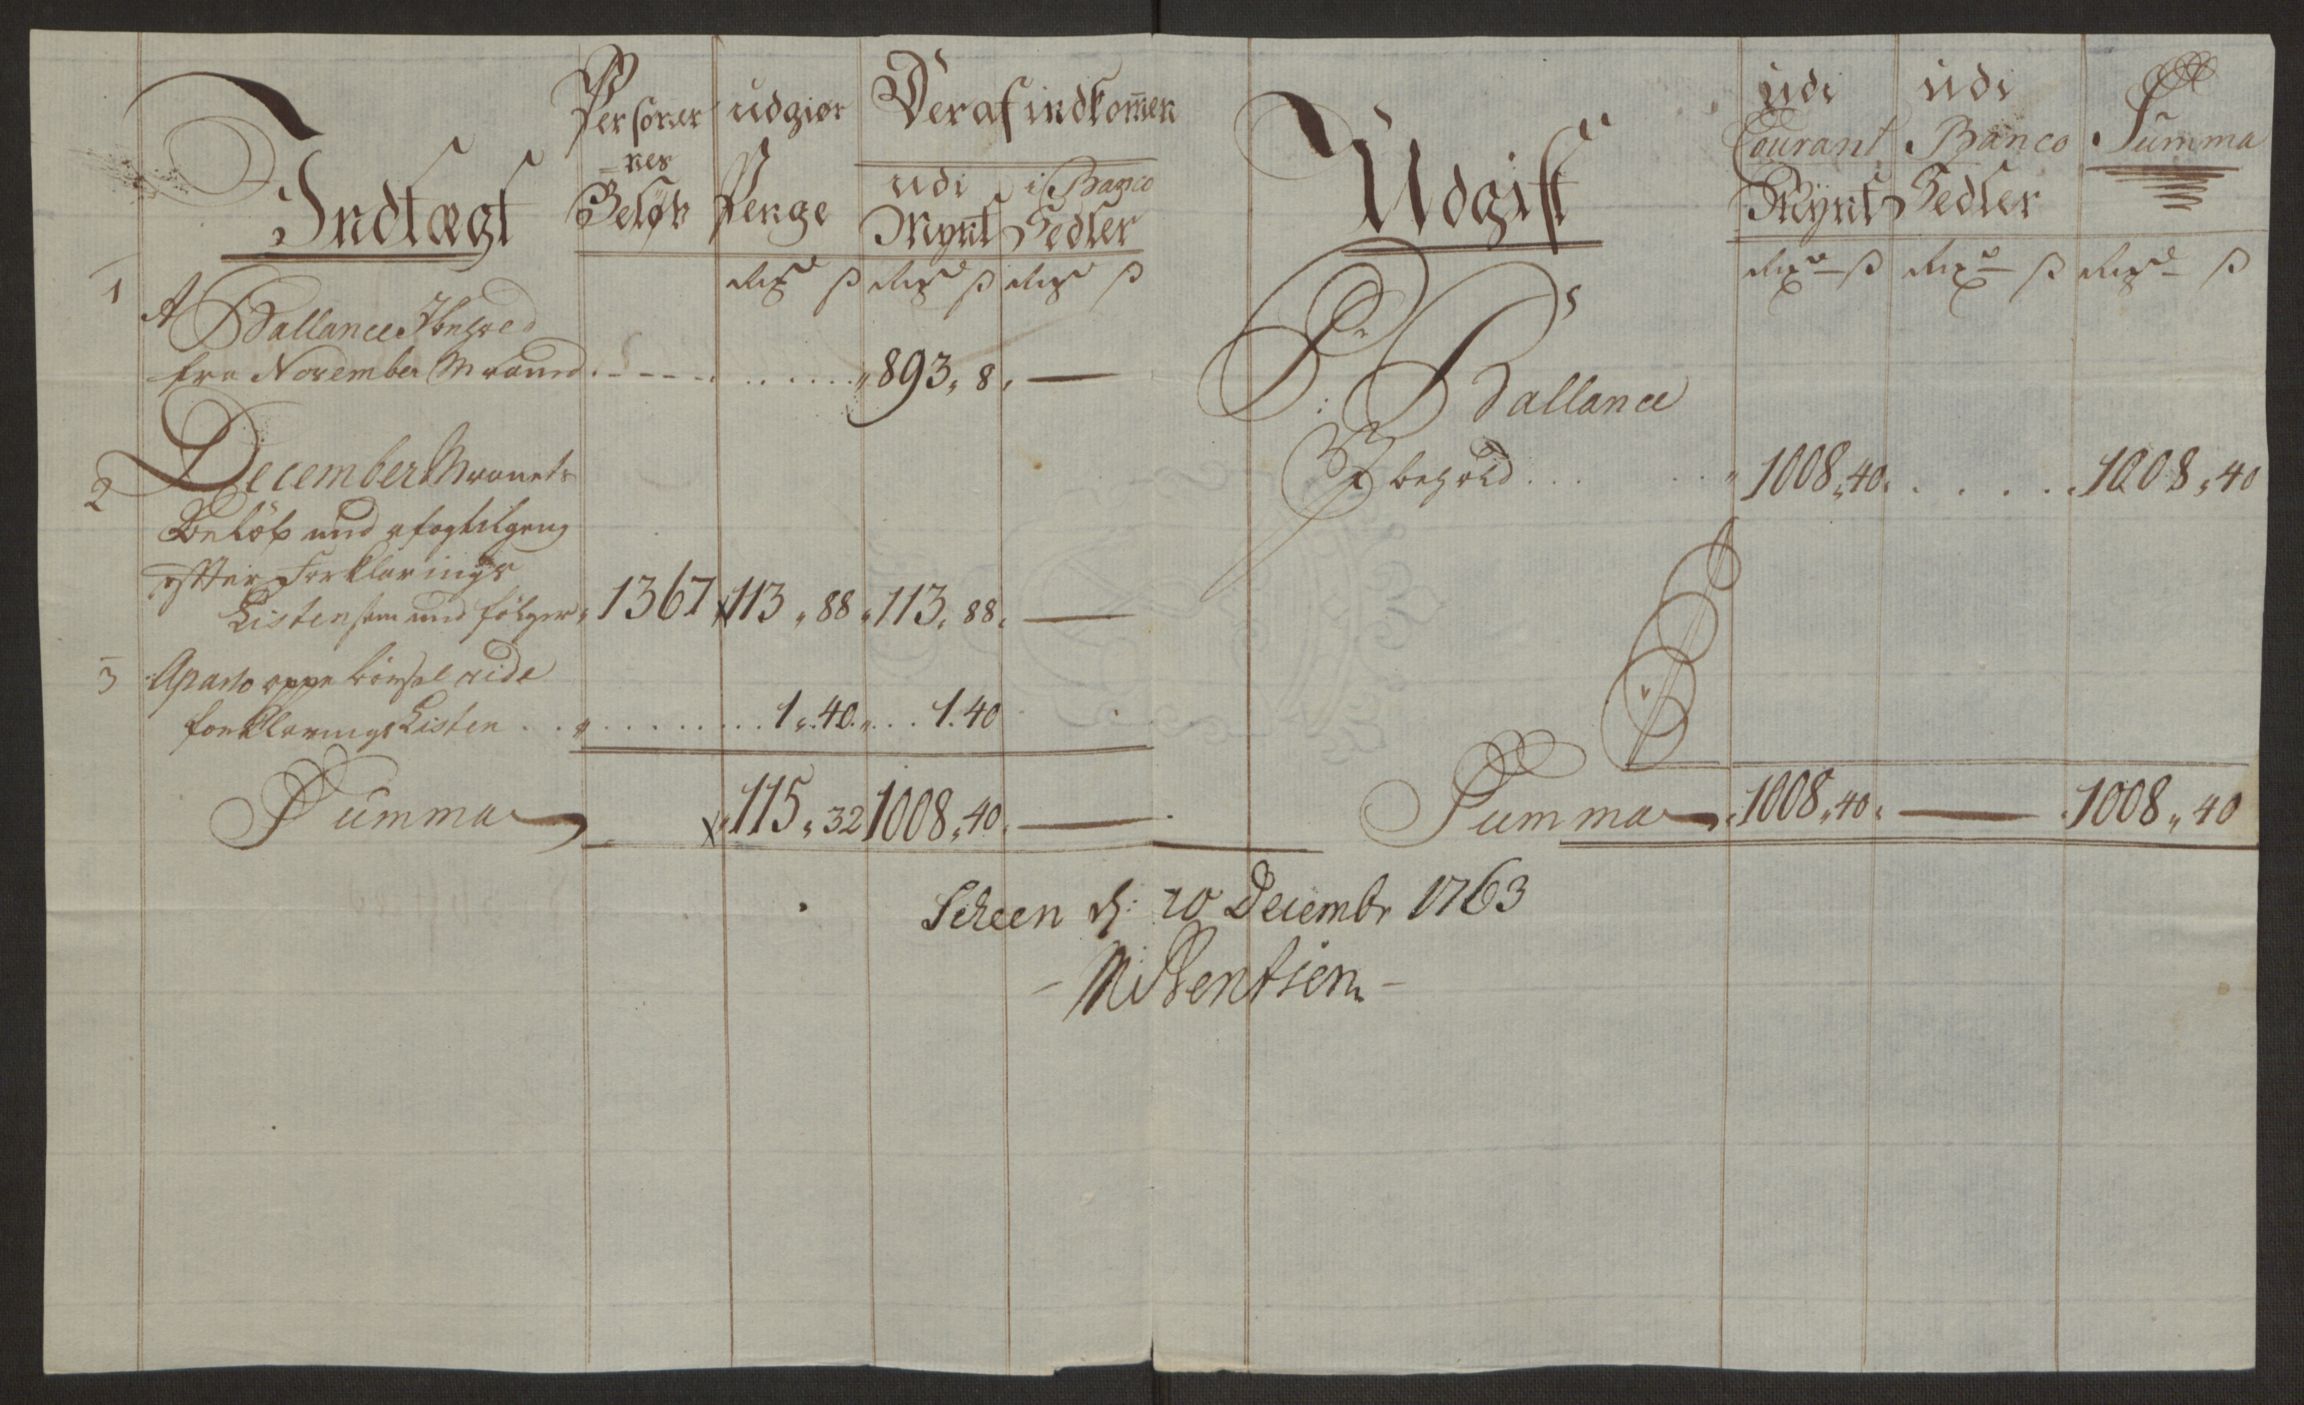 Indtægt
Personer
-nes
Beløb
udgiør
Penge
Deraf indkom̅en
udi
Mynt
i Banco
Sedler
Rixd ß Rixd ß Rixd ß
1
A Ballance Behold
fra November Maaned . - - - - . . . . . . " 893 " 8 " —
2
December Maanets
Beløb
efter Forklarings
Listen som med følger " 1367 113 " 88 " 113 " 88 " —
3
Aparte oppebørsel
forklarings Listen . . " . . . . . . . . . 1 " 40 " . . . 1. 40
Summa 115 " 32 1008 " 40 " —
Udgift
udi
Courant
Mynt
udi
Banco
Sedler
Summa
Rixd ß Rixd ß Rixd ß
Pr Ballance
Behold . . . " 1008 " 40 " . . . . . 1008 " 40
Summa 1008 " 40 " — 1008 " 40
Scheen d: 20 Decembr 1763